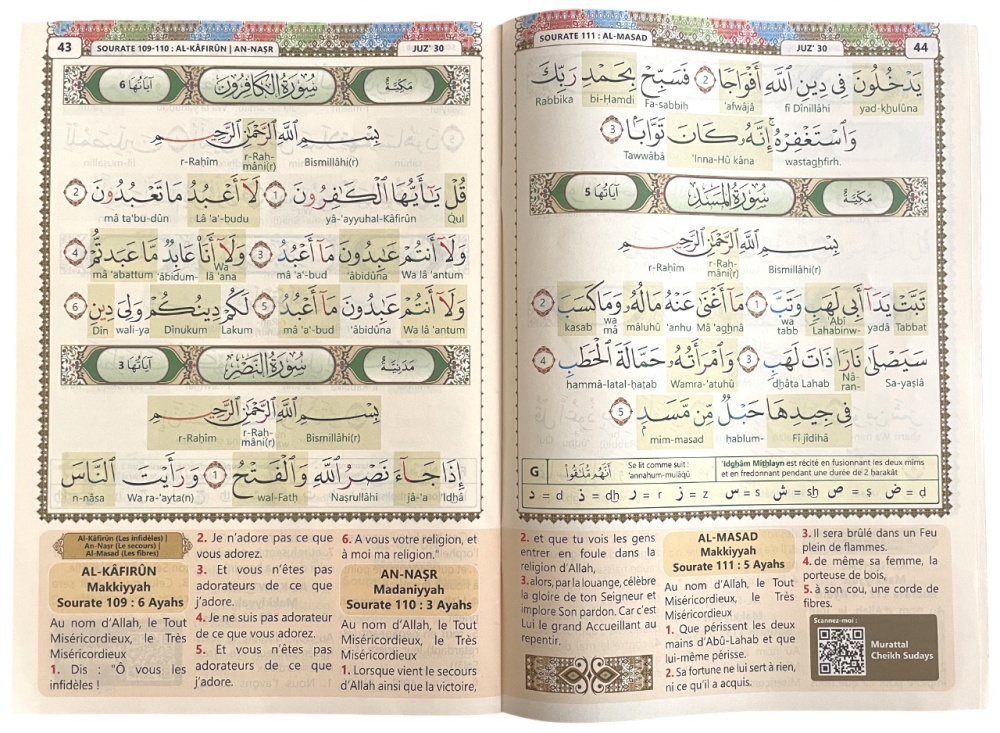 43
SOURATE 109-110 : AL-KÂFIRÛN | AN-NAṢR
JUZ' 30
مَكِيَّةٌ
سُورَةُ الْكَافِرُونَ
آيَاتُهَا 6
بِسْمِ اللَّهِ الرَّحْمَٰنِ الرَّحِيمِ
Bismillâhi(r) r-Raḥ-mâni(r) r-Raḥîm
قُلْ يَٰٓأَيُّهَا ٱلْكَٰفِرُونَ 1 لَآ أَعْبُدُ مَا تَعْبُدُونَ 2
Qul yâ-'ayyuhal-Kâfirûn Lâ 'a'-budu mâ ta'bu-dûn
وَلَآ أَنتُمْ عَٰبِدُونَ مَآ أَعْبُدُ 3 وَلَآ أَنَا۠ عَابِدٌ مَّا عَبَدتُّمْ 4
Wa lâ 'antum 'âbidûna mâ 'a'-bud Wa lâ 'ana 'âbidum- mâ 'abattum
وَلَآ أَنتُمْ عَٰبِدُونَ مَآ أَعْبُدُ 5 لَكُمْ دِينُكُمْ وَلِىَ دِينِ 6
Wa lâ 'antum 'âbidûna mâ 'a'-bud Lakum Dînukum wali-ya Dîn
مَدَنِيَّةٌ
سُورَةُ النَّصْرِ
آيَاتُهَا 3
بِسْمِ اللَّهِ الرَّحْمَٰنِ الرَّحِيمِ
Bismillâhi(r) r-Raḥ-mâni(r) r-Raḥîm
إِذَا جَآءَ نَصْرُ ٱللَّهِ وَٱلْفَتْحُ 1 وَرَأَيْتَ ٱلنَّاسَ
'Idhâ jâ-'a Naṣrullâhi wal-Fatḥ Wa ra-'ayta(n) n-nâsa
Al-Kâfirûn (Les infidèles) |
An-Naṣr (Le secours) |
Al-Masad (Les fibres)
AL-KÂFIRÛN
Makkiyyah
Sourate 109 : 6 Ayahs
Au nom d'Allah, le Tout
Miséricordieux, le Très
Miséricordieux
1. Dis : "Ô vous les
infidèles !
2. Je n'adore pas ce que
vous adorez.
3. Et vous n'êtes pas
adorateurs de ce que
j'adore.
4. Je ne suis pas adorateur
de ce que vous adorez.
5. Et vous n'êtes pas
adorateurs de ce que
j'adore.
6. A vous votre religion, et
à moi ma religion."
AN-NAṢR
Madaniyyah
Sourate 110 : 3 Ayahs
Au nom d'Allah, le Tout
Miséricordieux, le Très
Miséricordieux
1. Lorsque vient le secours
d'Allah ainsi que la victoire,
SOURATE 111 : AL-MASAD
JUZ' 30
44
يَدْخُلُونَ فِى دِينِ ٱللَّهِ أَفْوَاجًا 2 فَسَبِّحْ بِحَمْدِ رَبِّكَ
yad-khulûna fî Dînillâhi 'afwâjâ Fa-sabbiḥ bi-Ḥamdi Rabbika
وَٱسْتَغْفِرْهُ إِنَّهُۥ كَانَ تَوَّابًۢا 3
wastaghfirh. 'Inna-Hû kâna Tawwâbâ
مَكِيَّةٌ
سُورَةُ الْمَسَدِ
آيَاتُهَا 5
بِسْمِ اللَّهِ الرَّحْمَٰنِ الرَّحِيمِ
Bismillâhi(r) r-Raḥ-mâni(r) r-Raḥîm
تَبَّتْ يَدَآ أَبِى لَهَبٍ وَتَبَّ 1 مَآ أَغْنَىٰ عَنْهُ مَالُهُۥ وَمَا كَسَبَ 2
Tabbat yadâ 'Abî Lahabinw- wa tabb Mâ 'aghnâ 'anhu mâluhû wa mâ kasab
سَيَصْلَىٰ نَارًا ذَاتَ لَهَبٍ 3 وَٱمْرَأَتُهُۥ حَمَّالَةَ ٱلْحَطَبِ 4
Sa-yaṣlâ Nâ-ran- dhâta Lahab Wamra-'atuhû ḥammâ-latal-ḥaṭab
فِى جِيدِهَا حَبْلٌ مِّن مَّسَدٍ 5
Fî jîdihâ ḥablum- mim-masad
G
أَنَّهُم مُّلَٰقُوا۟
Se lit comme suit :
'annahum-mulâqû
'Idghâm Mithlayn est récité en fusionnant les deux mims
et en fredonnant pendant une durée de 2 ḥarakât
ض = ḍ ص = ṣ ش = sh س = s ز = z ر = r ذ = dh د = d
2. et que tu vois les gens
entrer en foule dans la
religion d'Allah,
3. alors, par la louange, célèbre
la gloire de ton Seigneur et
implore Son pardon. Car c'est
Lui le grand Accueillant au
repentir.
AL-MASAD
Makkiyyah
Sourate 111 : 5 Ayahs
Au nom d'Allah, le Tout
Miséricordieux, le Très
Miséricordieux
1. Que périssent les deux
mains d'Abû-Lahab et que
lui-même périsse.
2. Sa fortune ne lui sert à rien,
ni ce qu'il a acquis.
3. Il sera brûlé dans un Feu
plein de flammes.
4. de même sa femme, la
porteuse de bois,
5. à son cou, une corde de
fibres.
Scannez-moi :
Murattal
Cheikh Sudays